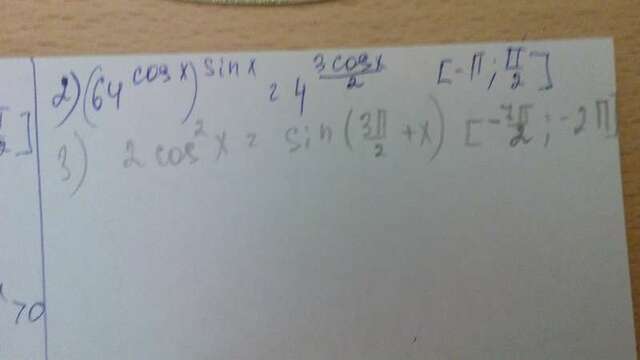 2) (64^cosx)^sinx = 4^(3cosx/2) [-π; π/2]
3) 2cos²x = sin(3π/2 + x) [-7π/2; -2π]
2]
>0